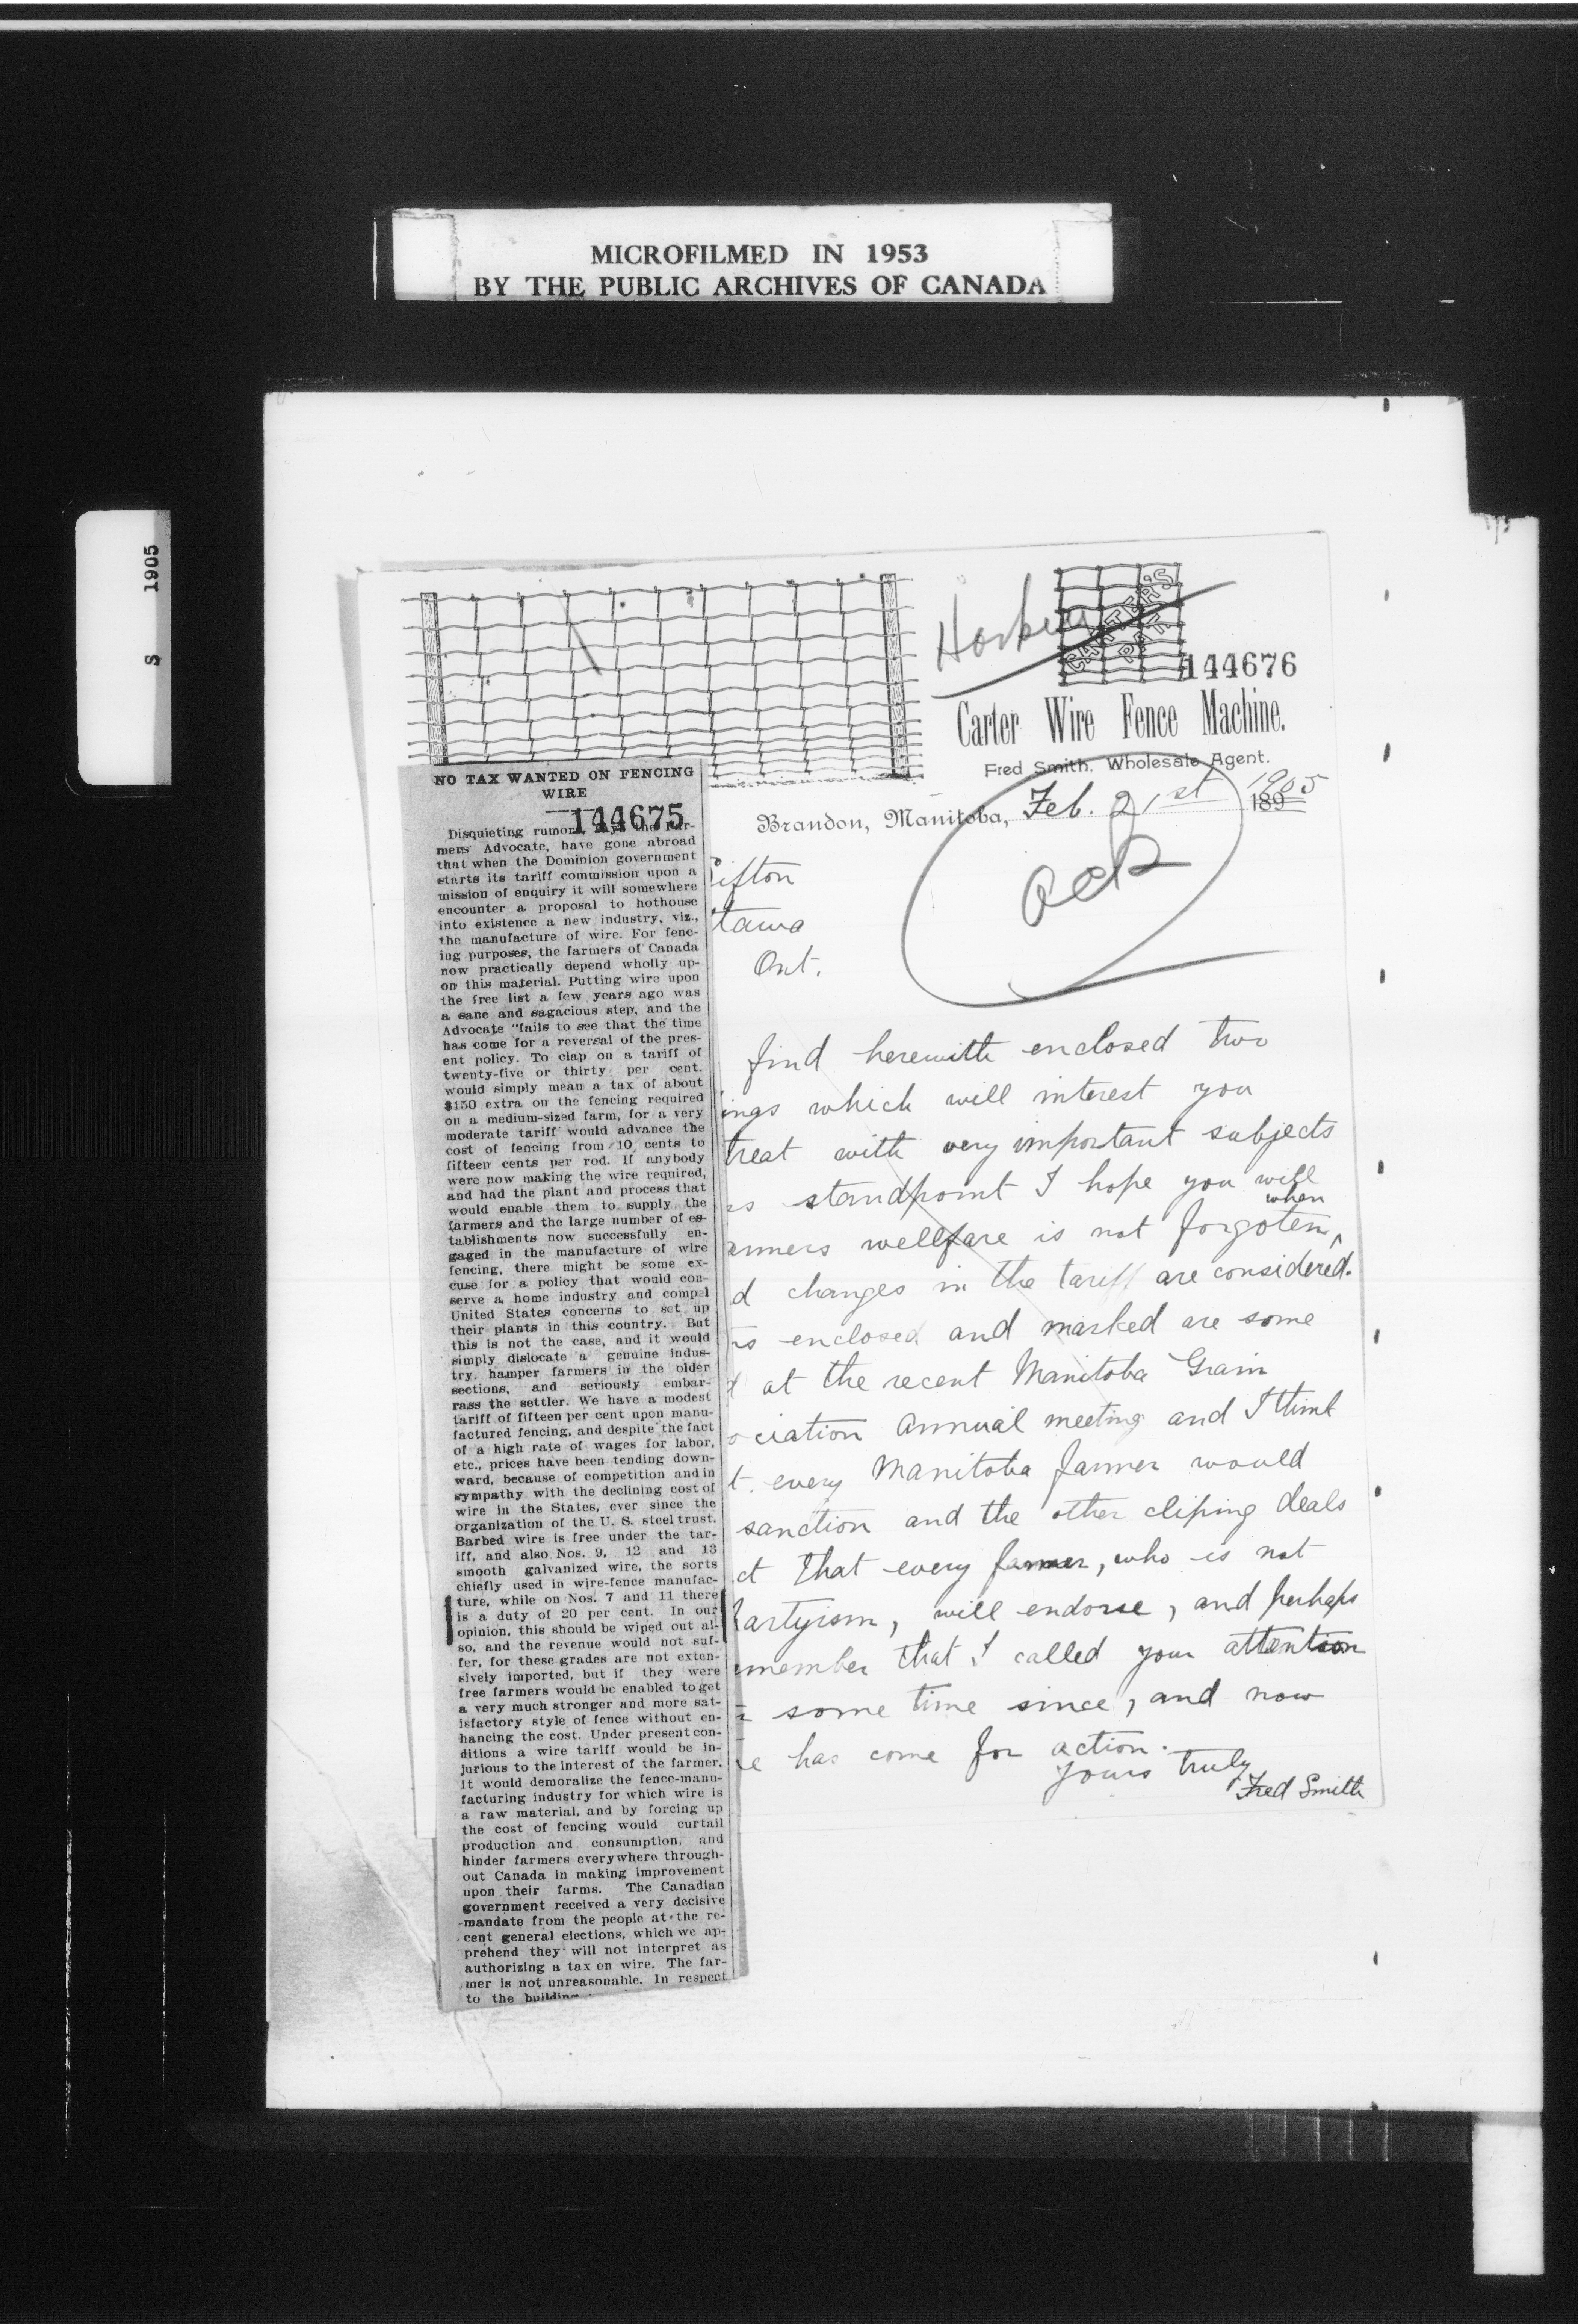 MICROFILMED IN 1953
BY THE PUBLIC ARCHIVES OF CANADA
S 1905
CARTER'S
PAT
144676
Carter Wire Fence Machine.
Fred Smith, Wholesale Agent.
Brandon, Manitoba, Feb. 21st 1905
189
ack
ifton
tawa
Ont.
find herewith enclosed two
ings which will interest you
treat with very important subjects
rs standpoint I hope you will
armers wellfare is not forgoten, when
d changes in the tariff are considered.
rs enclosed and marked are some
d at the recent Manitoba Grain
ociation Annual meeting and I think
t every Manitoba farmer would
sanction and the other cliping deals
ct that every farmer, who is not
partyism, will endorse, and perhaps
emember that I called your attention
some time since, and now
e has come for action.
Yours truly
Fred Smith
NO TAX WANTED ON FENCING
WIRE
144675
Disquieting rumors, says the Far-
mers' Advocate, have gone abroad
that when the Dominion government
starts its tariff commission upon a
mission of enquiry it will somewhere
encounter a proposal to hothouse
into existence a new industry, viz.,
the manufacture of wire. For fenc-
ing purposes, the farmers of Canada
now practically depend wholly up-
on this material. Putting wire upon
the free list a few years ago was
a sane and sagacious step, and the
Advocate "fails to see that the time
has come for a reversal of the pres-
ent policy. To clap on a tariff of
twenty-five or thirty per cent.
would simply mean a tax of about
$150 extra on the fencing required
on a medium-sized farm, for a very
moderate tariff would advance the
cost of fencing from 10 cents to
fifteen cents per rod. If anybody
were now making the wire required,
and had the plant and process that
would enable them to supply the
farmers and the large number of es-
tablishments now successfully en-
gaged in the manufacture of wire
fencing, there might be some ex-
cuse for a policy that would con-
serve a home industry and compel
United States concerns to set up
their plants in this country. But
this is not the case, and it would
simply dislocate a genuine indus-
try, hamper farmers in the older
sections, and seriously embar-
rass the settler. We have a modest
tariff of fifteen per cent upon manu-
factured fencing, and despite the fact
of a high rate of wages for labor,
etc., prices have been tending down-
ward, because of competition and in
sympathy with the declining cost of
wire in the States, ever since the
organization of the U. S. steel trust.
Barbed wire is free under the tar-
iff, and also Nos. 9, 12 and 13
smooth galvanized wire, the sorts
chiefly used in wire-fence manufac-
ture, while on Nos. 7 and 11 there
is a duty of 20 per cent. In our
opinion, this should be wiped out al-
so, and the revenue would not suf-
fer, for these grades are not exten-
sively imported, but if they were
free farmers would be enabled to get
a very much stronger and more sat-
isfactory style of fence without en-
hancing the cost. Under present con-
ditions a wire tariff would be in-
jurious to the interest of the farmer.
It would demoralize the fence-manu-
facturing industry for which wire is
a raw material, and by forcing up
the cost of fencing would curtail
production and consumption, and
hinder farmers everywhere through-
out Canada in making improvement
upon their farms. The Canadian
government received a very decisive
mandate from the people at the re-
cent general elections, which we ap-
prehend they will not interpret as
authorizing a tax on wire. The far-
mer is not unreasonable. In respect
to the building